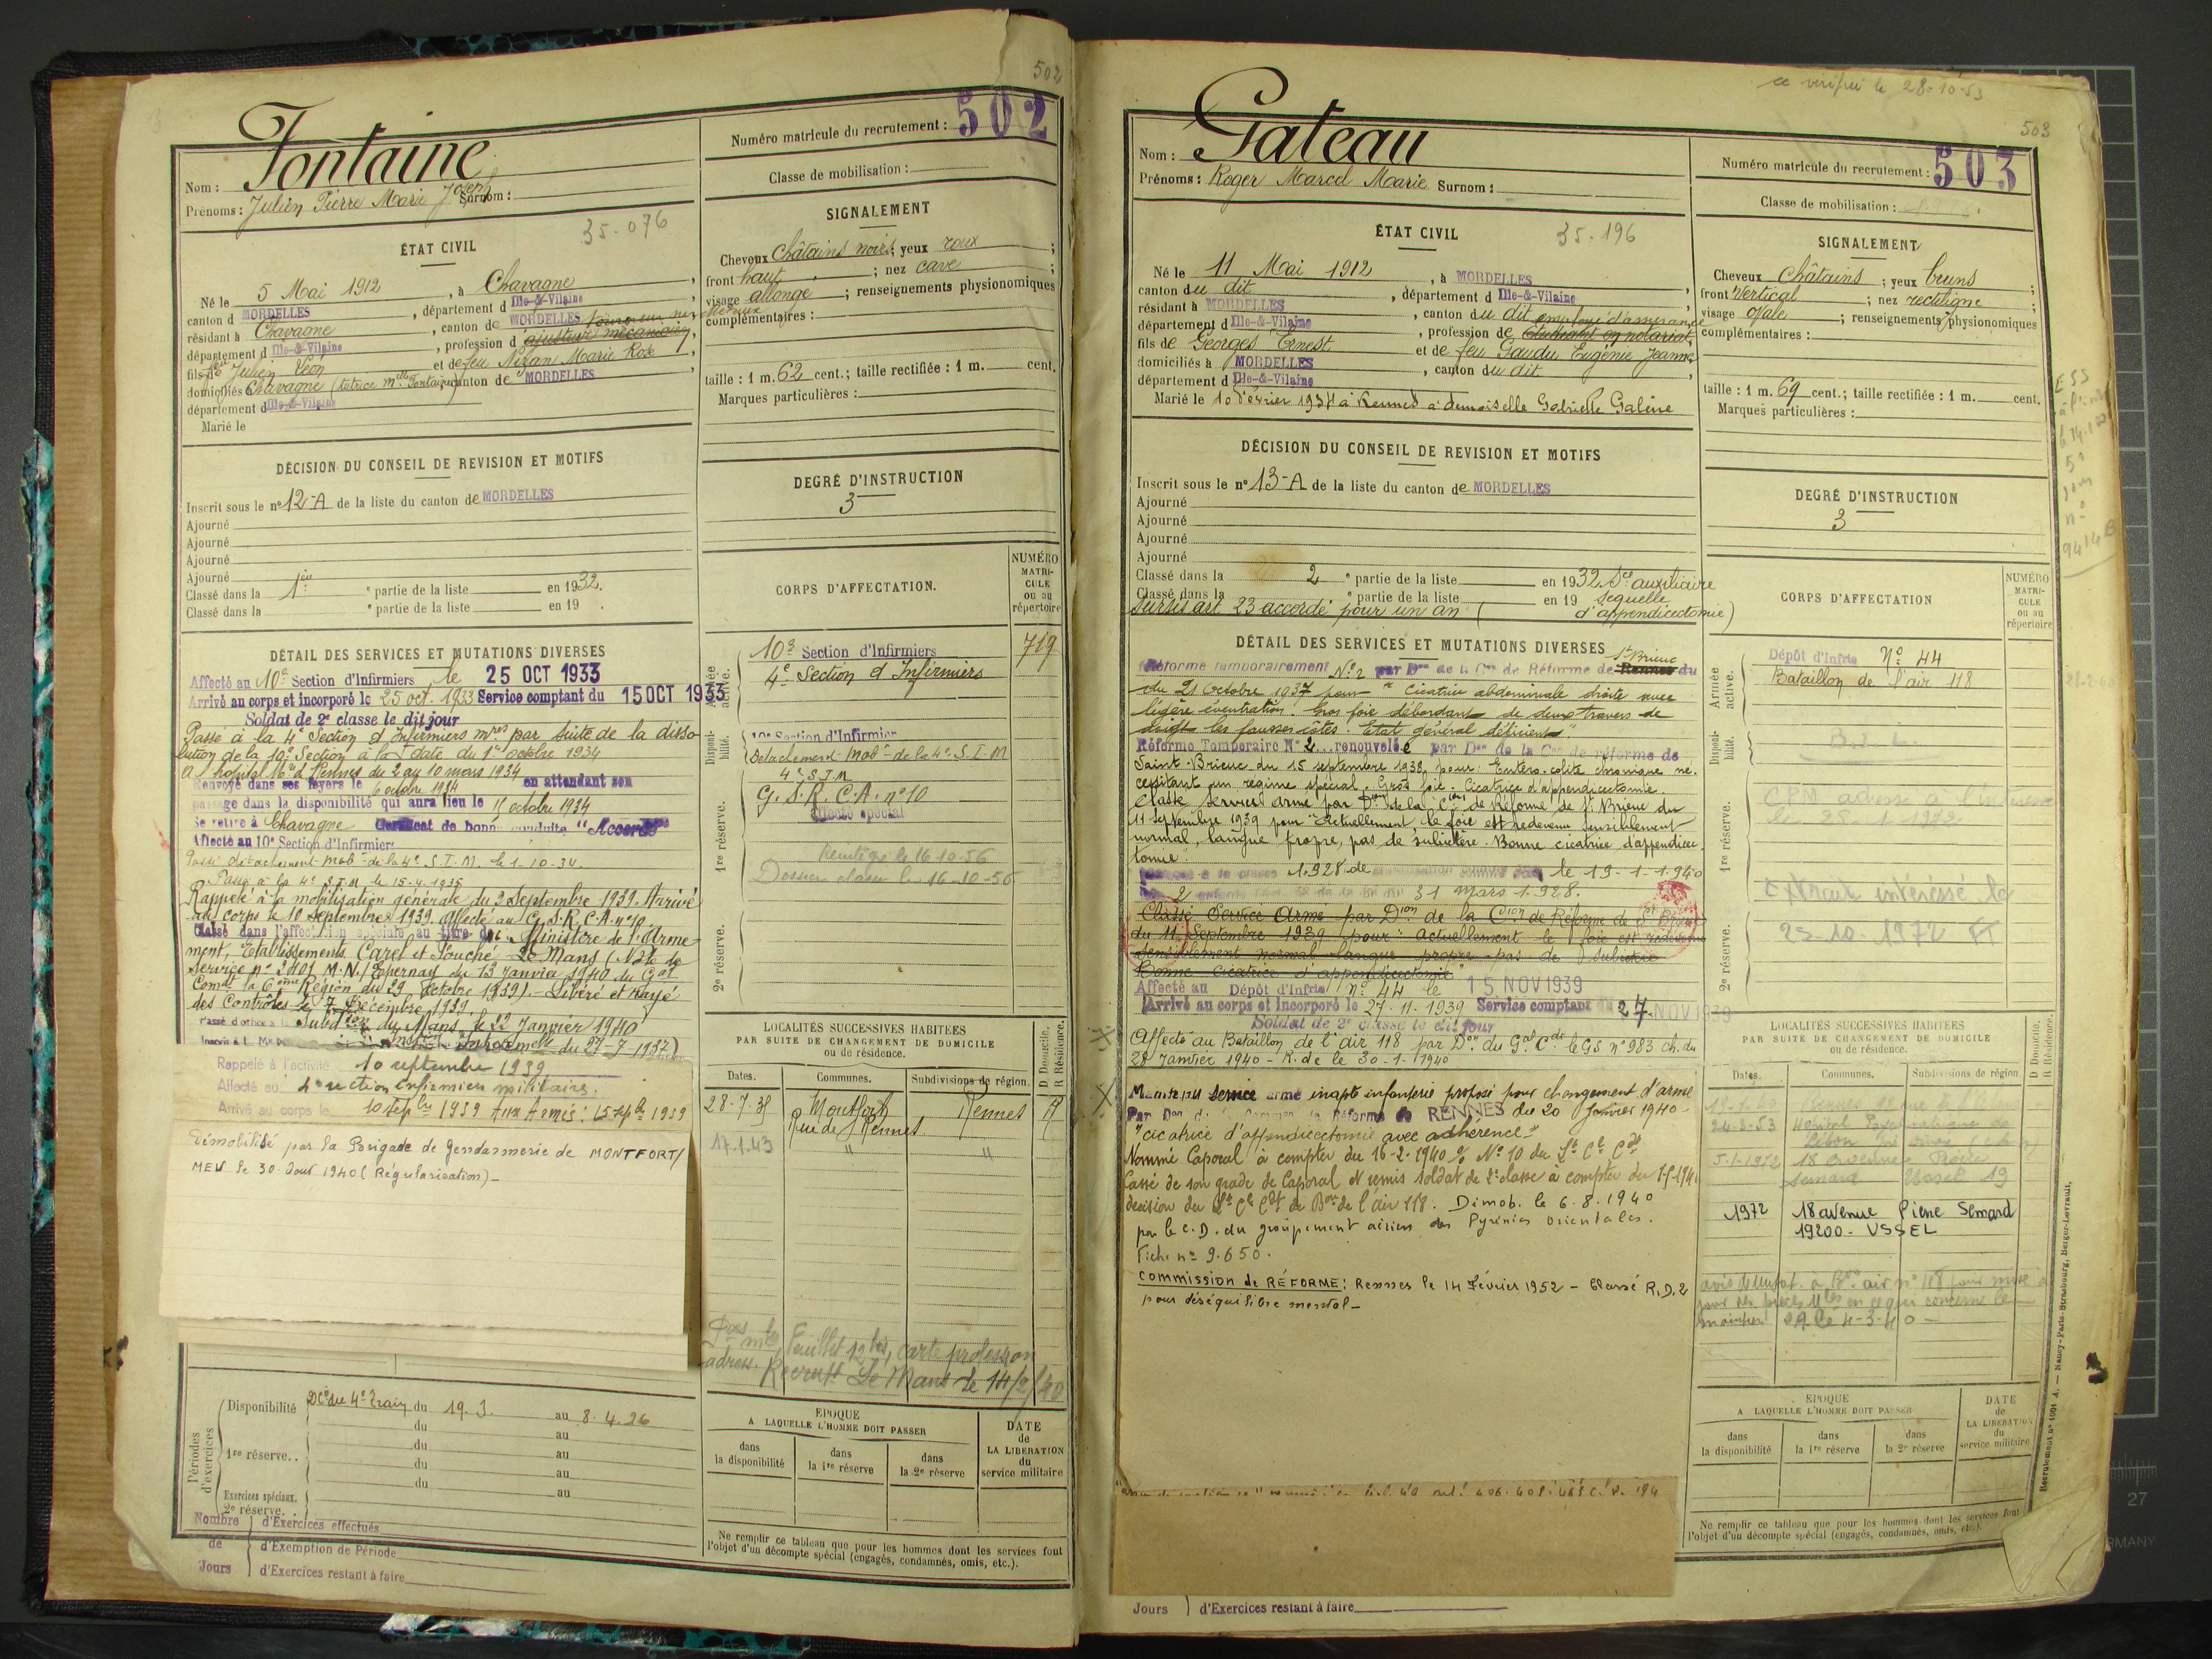 502
Nom : Fontaine
Prénoms : Julien Pierre Marie Joseph Surnom :
Numéro matricule du recrutement : 502
Classe de mobilisation :
35-076
ÉTAT CIVIL
Né le 5 Mai 1912, à Chavagne,
canton d MORDELLES, département d Ille-&-Vilaine,
résidant à Chavagne, canton de MORDELLES
département d Ille-&-Vilaine, profession d ajusteur mécanicien,
fils de feu Julien Léon et de feu Nizan Marie Rose
domiciliés Chavagne (tutrice Mlle Fontaine) canton de MORDELLES
département d Ille-&-Vilaine
Marié le
SIGNALEMENT
Cheveux Châtains noirs; yeux roux ;
front haut ; nez cave ;
visage allongé ; renseignements physionomiques
complémentaires :
taille : 1 m. 62 cent.; taille rectifiée : 1 m. cent.
Marques particulières :
DÉCISION DU CONSEIL DE REVISION ET MOTIFS
Inscrit sous le n° 12-A de la liste du canton de MORDELLES
Ajourné
Ajourné
Ajourné
Ajourné
Ajourné
Classé dans la 1ère partie de la liste en 1932.
Classé dans la e partie de la liste en 19 .
DEGRÉ D'INSTRUCTION
3
CORPS D'AFFECTATION.
NUMÉRO MATRICULE ou au répertoire
Armée active.
10e Section d'Infirmiers 719
4e Section d'Infirmiers
Disponibilité.
10e Section d'Infirmiers
Détachement Mobre de la 4e S.I.M
4e S.I.M
1re réserve.
G.S.R.C.A. n° 10
Affecté spécial
Réintégré le 16-10-56
Dossier classé le 16-10-56
2e réserve.
DÉTAIL DES SERVICES ET MUTATIONS DIVERSES
Affecté au 10e Section d'Infirmiers, le 25 OCT 1933
Arrivé au corps et incorporé le 25 oct. 1933 Service comptant du 15 OCT 1933
Soldat de 2e classe le dit jour
Passé à la 4e Section d'Infirmiers mres par suite de la disso-
lution de la 10e Section à la date du 1er octobre 1934
A l'hôpital Mre d. Rennes du 2 au 10 mars 1934
Renvoyé dans ses foyers le 6 octobre 1934 en attendant son
passage dans la disponibilité qui aura lieu le 15 octobre 1934
Se retire à Chavagne Certificat de bonne conduite "Accordé"
Affecté au 10e Section d'Infirmiers
Passé détachement Mobre de la 4e S.I.M. le 1-10-34.
Passé à la 4e S.I.M le 15-4-1936
Rappelé à la mobilisation générale du 2 Septembre 1939. Arrivé
au corps le 10 Septembre 1939. affecté au G.S.R.C.A. n° 10
Classé dans l'affectation spéciale au titre du Ministère de l'Arme-
ment, Etablissements Carel et Fouché Le Mans (Note de
Service n° 2401 M.N./Epernay du 13 Janvier 1940 du Gal
Comt la 6ème Région du 29 Octobre 1939). - Libéré et Rayé
des Contrôles le 7 Décembre 1939.
Passé d'office à la Subdon du Mans, le 22 Janvier 1940
Rappelé à l'activité 10 septembre 1939
Affecté au 4e section infirmiers militaires.
Arrivé au corps le 10 septbre 1939 Aux Armées : 15 septbre 1939
Démobilisé par la Brigade de Gendarmerie de MONTFORT/
MEU le 30 Aout 1940 (Régularisation) -
LOCALITÉS SUCCESSIVES HABITÉES
PAR SUITE DE CHANGEMENT DE DOMICILE
ou de résidence.
Dates. Communes. Subdivisions de région. D Domicile. R Résidence.
28-7-35 Montfort Rennes R
Rue de Rennes
17-1-43 " "
Feuillet 12 bis, carte profession
adress. Recrutt Le Mans le 14/2/40
Périodes d'exercices
Disponibilité DCa du 4e Train du 19.3. au 8.4.36
du au
1re réserve.. du au
du au
du au
Exercices spéciaux.
2e réserve. . au
Nombre de Jours
d'Exercices effectués
d'Exemption de Période
d'Exercices restant à faire
EPOQUE
A LAQUELLE L'HOMME DOIT PASSER
dans la disponibilité
dans la 1re réserve
dans la 2e réserve
DATE de LA LIBERATION du service militaire
Ne remplir ce tableau que pour les hommes dont les services font
l'objet d'un décompte spécial (engagés, condamnés, omis, etc.).
vérifié le 28-10-53
503
Nom : Gateau
Prénoms : Roger Marcel Marie Surnom :
Numéro matricule du recrutement : 503
Classe de mobilisation :
35-196
ÉTAT CIVIL
Né le 11 Mai 1912, à MORDELLES
canton du dit, département d Ille-&-Vilaine,
résidant à MORDELLES, canton du dit employé d'assurance
département d Ille-&-Vilaine, profession de Etudiant en notariat,
fils de Georges Ernest et de feu Gaudu Eugénie Jeanne
domiciliés à MORDELLES, canton du dit
département d Ille-&-Vilaine
Marié le 10 Février 1934 à Rennes à demoiselle Gabrielle Galène
SIGNALEMENT
Cheveux Châtains ; yeux bruns ;
front Vertical ; nez rectiligne ;
visage ovale ; renseignements physionomiques
complémentaires :
taille : 1 m. 69 cent.; taille rectifiée : 1 m. cent.
Marques particulières :
DÉCISION DU CONSEIL DE REVISION ET MOTIFS
Inscrit sous le n° 13-A de la liste du canton de MORDELLES
Ajourné
Ajourné
Ajourné
Ajourné
Classé dans la 2 e partie de la liste en 1932 Sce auxiliaire
Classé dans la e partie de la liste en 19 sequelle
Sursis art. 23 accordé pour un an ( d'appendicectomie)
DEGRÉ D'INSTRUCTION
3
CORPS D'AFFECTATION
NUMÉRO MATRICULE ou au répertoire
Armée active.
Dépôt d'Infrie N° 44
Bataillon de l'air 118
Disponibilité.
1re réserve.
le 28-1-1972
2e réserve.
Extrait intéressé le
25-10-1972
DÉTAIL DES SERVICES ET MUTATIONS DIVERSES
Réforme temporairement N° 2 par Don de la Con de Réforme de Rennes St Brieuc du
du 21 Octobre 1937 pour "Cicatrice abdominale droite avec
légère éventration. Gros foie débordant de deux travers de
doigt les fausses côtes. Etat général déficient".
Réforme Temporaire N° 2 renouvelée par Don de la Con de réforme de
Saint-Brieuc du 15 septembre 1938, pour : Entéro-colite chronique né-
cessitant un régime spécial. Gros foie. Cicatrice d'appendicectomie.
Classé service armé par Don de la Cion de Réforme de St Brieuc du
11 septembre 1939 pour "Actuellement, le foie est redevenu sensiblement
normal, langue propre, pas de subictère. Bonne cicatrice d'appendicec-
tomie".
1.928 de le 19-1-1940
31 mars 1.928.
Classé Service Armé par Dion de la Cion de Réforme de St Brieuc
du 11 Septembre 1939 pour "actuellement le foie est redevenu
sensiblement normal langue propre pas de subictère
Bonne cicatrice d'appendicectomie"
Affecté au Dépôt d'Infrie n° 44 le 15 NOV 1939
Arrivé au corps et incorporé le 27-11-1939 Service comptant du 27 NOV 1939
Soldat de 2e classe le dit jour
Affecté au Bataillon de l'air 118 par Don du Gal Cdt le GS n° 983 ch. du
28 Janvier 1940 - R. de le 30-1-1940
Maintenu service armé inapte infanterie proposé pour changement d'arme
Par Don de la Common de Réforme de RENNES du 20 Janvier 1940 -
"cicatrice d'appendicectomie avec adhérence"
Nommé Caporal à compter du 16-2-1940 % N° 10 du Lt Cl Cdt
Cassé de son grade de Caporal et remis soldat de 2e classe à compter du
décision du Lt Cl Cdt de Bon de l'air 118. Dimob. le 6.8.1940
par le C.D. du groupement aérien des Pyrénées Orientales.
Fiche n° 9.650.
COMMISSION de RÉFORME : Rennes le 14 Février 1952 - Classé R.D.2
pour déséquilibre mental -
LOCALITÉS SUCCESSIVES HABITÉES
PAR SUITE DE CHANGEMENT DE DOMICILE
ou de résidence.
Dates. Communes. Subdivisions de région D Domicile. R Résidence.
24-8-53 Hôpital Psychiatrique de
5-1-1972 18 avenue Pierre
Semard Ussel 19
1972 18 avenue Pierre Semard
19200 - USSEL
EPOQUE
A LAQUELLE L'HOMME DOIT PASSER
dans la disponibilité
dans la 1re réserve
dans la 2e réserve
DATE de LA LIBERATION du service militaire
Ne remplir ce tableau que pour les hommes dont les services font
l'objet d'un décompte spécial (engagés, condamnés, omis, etc.).
Jours d'Exercices restant à faire
Recrutement n° 1001 A. — Nancy-Paris-Strasbourg, Berger-Levrault.
27